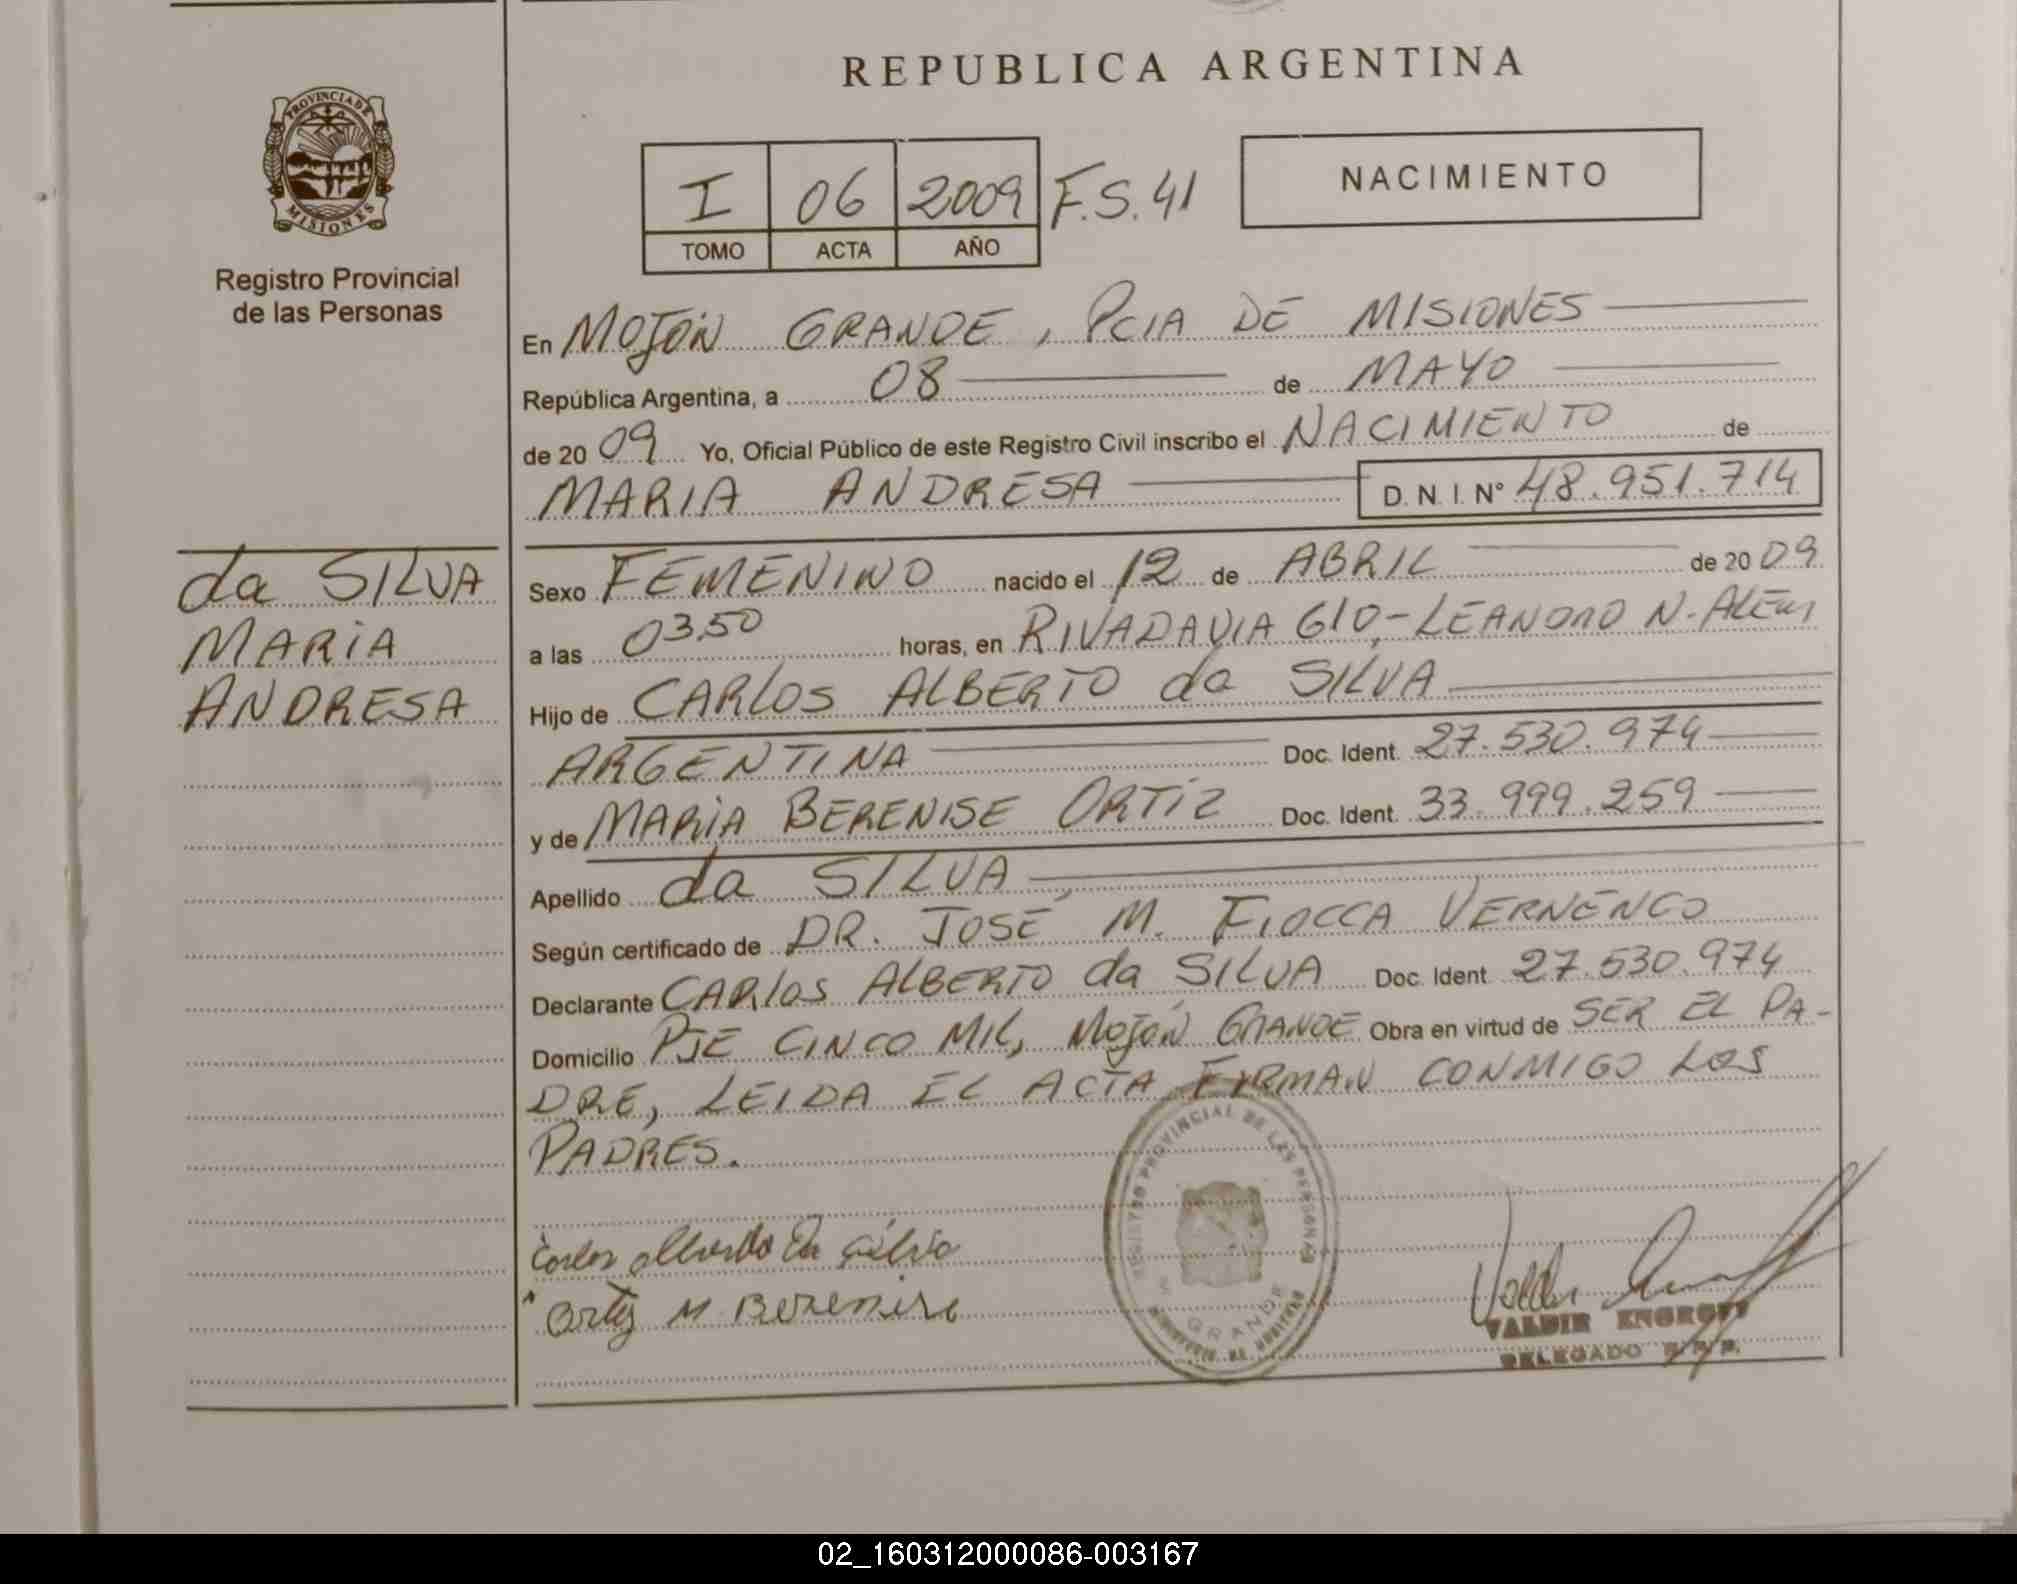 REPUBLICA ARGENTINA
PROVINCIA DE
MISIONES
Registro Provincial
de las Personas
I 06 2009 F.S. 41
TOMO ACTA AÑO
NACIMIENTO
En MOJÓN GRANDE, PCIA DE MISIONES
República Argentina, a 08 de MAYO
de 2009 Yo, Oficial Público de este Registro Civil inscribo el NACIMIENTO de
MARIA ANDRESA D.N.I. Nº 48.951.714
da SILVA
MARIA
ANDRESA
Sexo FEMENINO nacido el 12 de ABRIL de 2009
a las 03.50 horas, en RIVADAVIA 610,- LEANDRO N. ALEM
Hijo de CARLOS ALBERTO da SILVA
ARGENTINA Doc. Ident. 27.530.974
y de MARIA BERENISE ORTIZ Doc. Ident. 33.999.259
Apellido da SILVA
Según certificado de DR. JOSÉ M. FIOCCA VERNENGO
Declarante CARLOS ALBERTO da SILVA Doc. Ident. 27.530.974
Domicilio PJE CINCO MIL, MOJÓN GRANDE Obra en virtud de SER EL PA-
DRE, LEIDA EL ACTA FIRMAN CONMIGO LOS
PADRES.
REGISTRO PROVINCIAL DE LAS PERSONAS
GRANDE
Carlos Alberto Da Silva
Ortiz M Berenise
VALDIR ENGROFF
DELEGADO R.P.P.
02_160312000086-003167